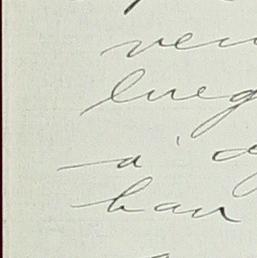 ven
lueg
a
han